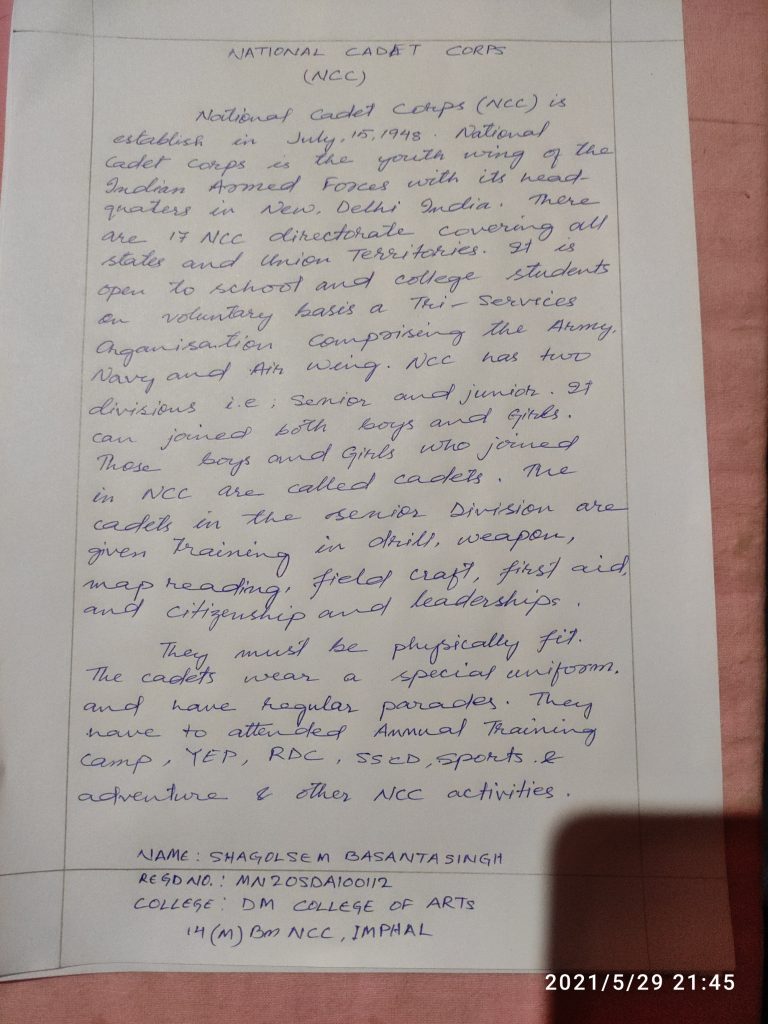 NATIONAL CADET CORPS
(NCC)
National Cadet Corps (NCC) is
establish in July, 15, 1948. National
Cadet Corps is the youth wing of the
Indian Armed Forces with its head-
quaters in New. Delhi India. There
are 17 NCC directorate covering all
states and Union Territories. It is
open to school and college students
on voluntary basis a Tri-Services
Organisation comprising the Army,
Navy and Air wing. NCC has two
divisions i.e; Senior and junior. It
can joined both boys and Girls.
Those boys and Girls who joined
in NCC are called cadets. The
cadets in the senior Division are
given Training in drill, weapon,
map reading, field craft, first aid,
and citizenship and leaderships.
They must be physically fit.
The cadets wear a special uniform.
and have regular parades. They
have to attended Annual Training
Camp, YEP, RDC, SSCD, Sports &
adventure & other NCC activities.
NAME: SHAGOLSEM BASANTA SINGH
REGD NO.: MN20SDA100112
COLLEGE: DM COLLEGE OF ARTS
14 (M) Bn NCC, IMPHAL
2021/5/29 21:45